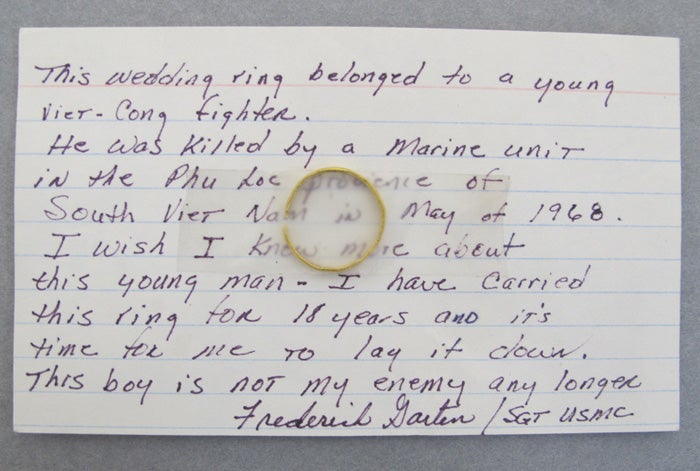 This wedding ring belonged to a young
Viet-Cong fighter.
He was killed by a Marine unit
in the Phu Loc provience of
South Viet Nam in May of 1968.
I wish I knew more about
this young man - I have carried
this ring for 18 years and it's
time for me to lay it down.
This boy is not my enemy any longer
Frederick Garten / SGT USMC